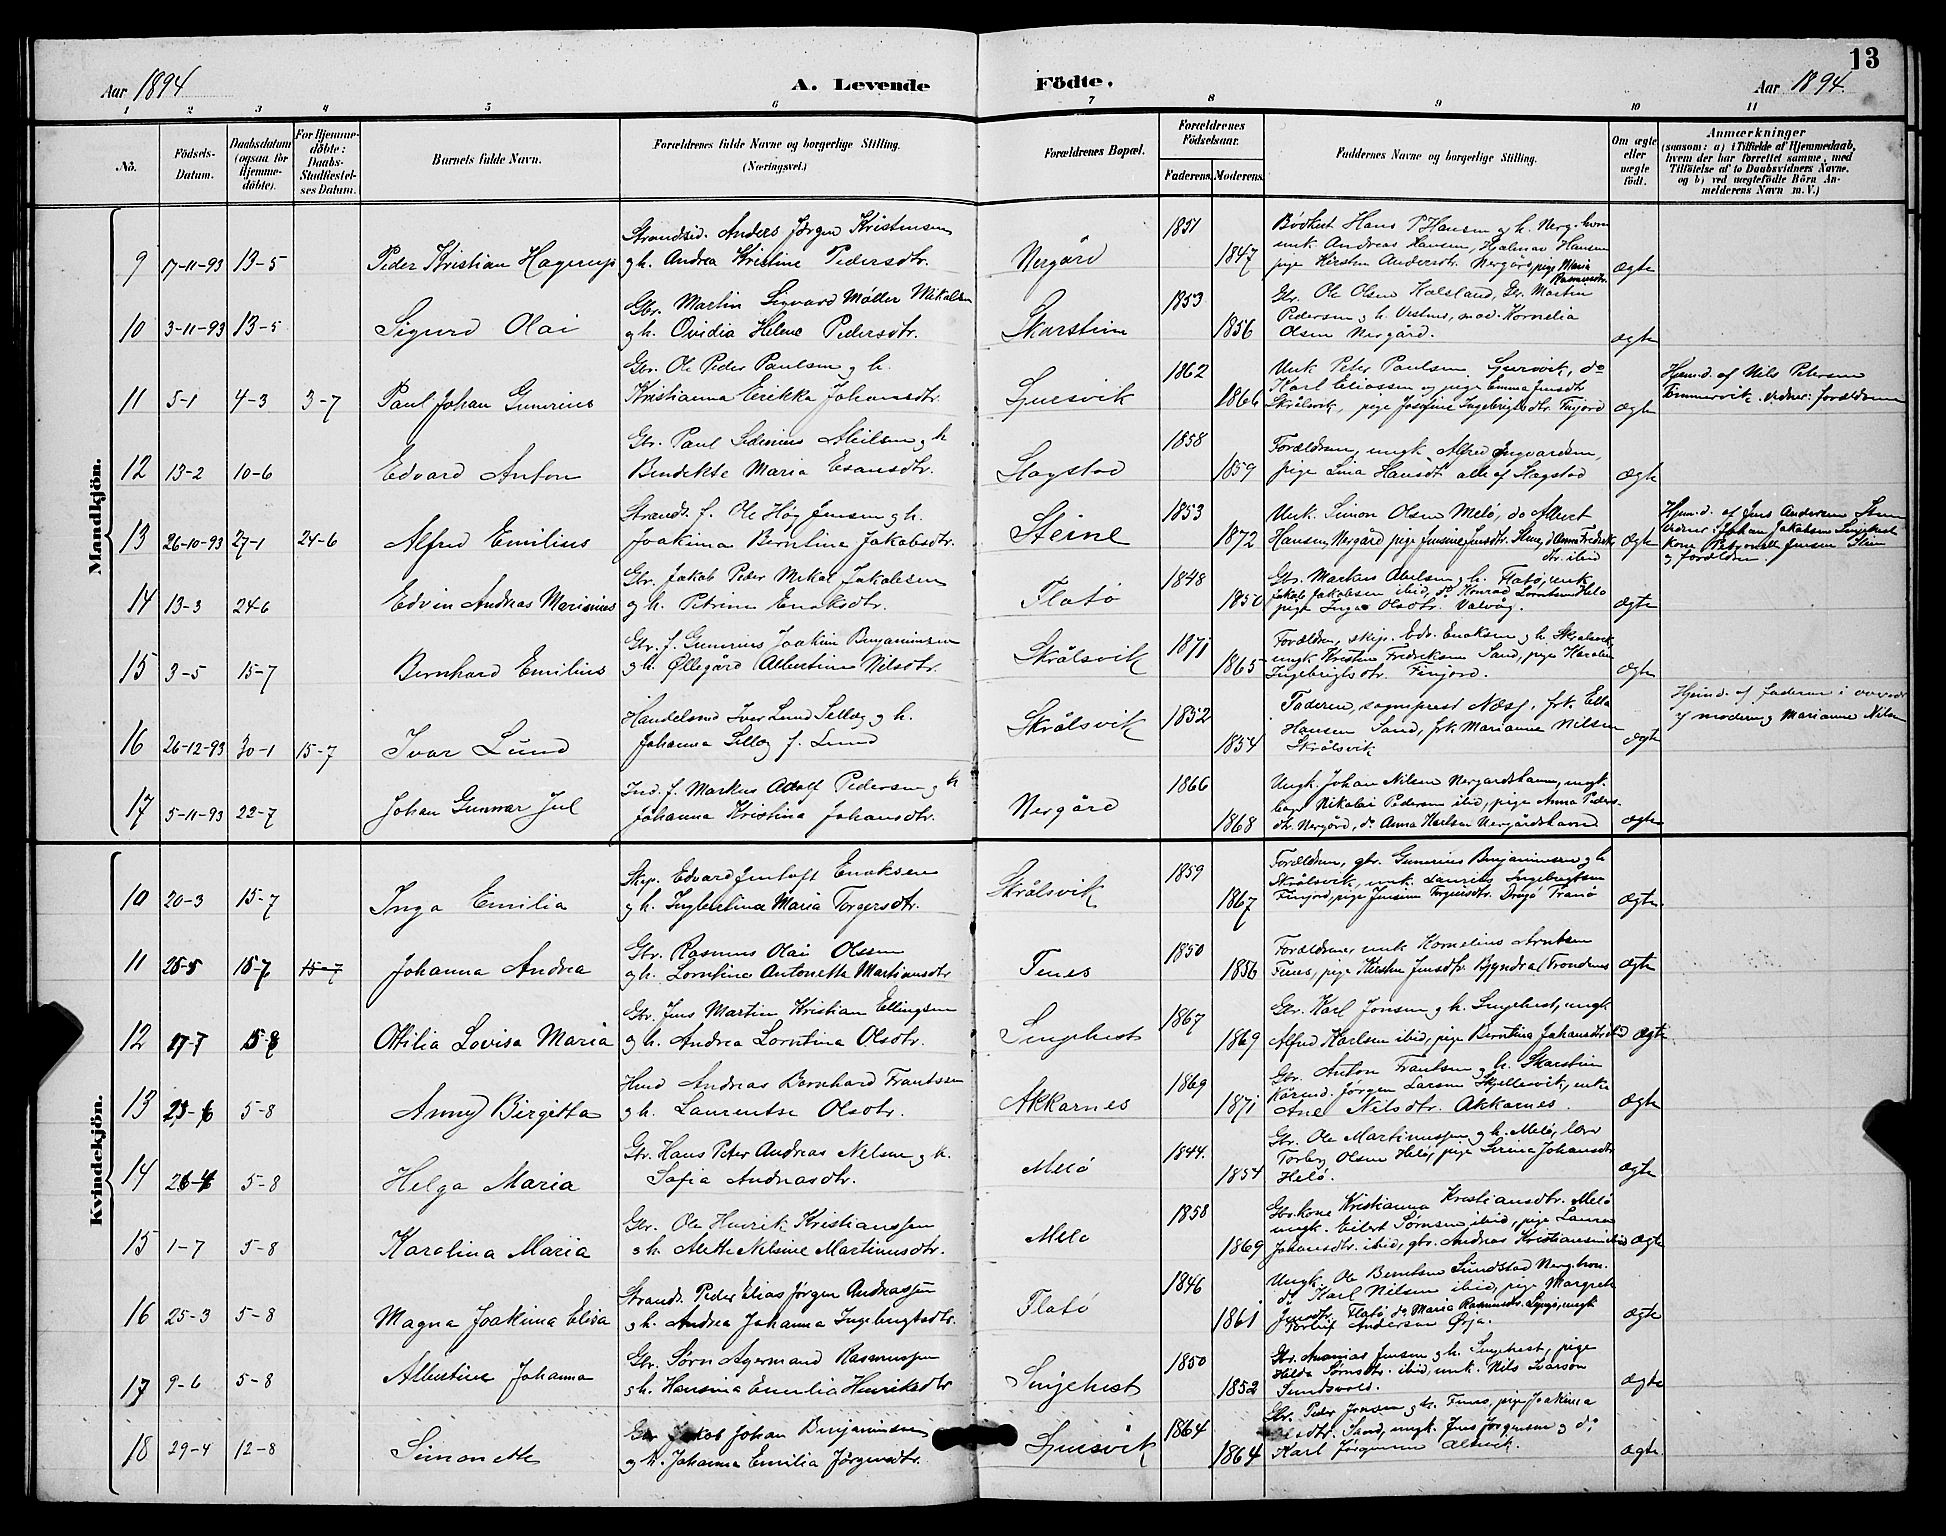 13
Aar 1894
A. Levende Födte.
Aar 1894.
1 2 3 4 5 6 7 8 9 10 11
No.
Födsels-Datum.
Daabsdatum (ogsaa for Hjemmedöbte).
For Hjemmedöbte: Daabs-Stadfæstelses Datum.
Barnets fulde Navn.
Forældrenes fulde Navne og borgerlige Stilling.
(Næringsvei.)
Forældrenes Bopæl.
Forældrenes Födselsaar.
Faderens. Moderens.
Faddernes Navne og borgerlige Stilling.
Om ægte eller uægte födt.
Anmærkninger
(saasom: a) i Tilfælde af Hjemmedaab,
hvem der har forrettet samme, med
Tilföielse af to Daabsvidners Navne.
og b) ved uægtefödte Börn Anmelderens Navn m. V.)
Mandkjön.
9 17-11-93 13-5 Peder Kristian Hagerup
Strandsid. Anders Jørgen Kristensen
g h. Andrea Kristine Pedersdtr.
Nergård 1851 1847
Bødkert Hans P Hansen g h. Nerg.
unk Andreas Hansen, Halmar Hansen
pige Kirsten Andersdtr. Nergård, pige Maria Rasmusdtr.
ægte
10 3-11-93 13-5 Sigurd Olai
Gbr. Martin Sigvard Møller Mikalsen
g h. Ovidia Helene Pedersdtr.
Skarstein 1853 1856
Gbr. Ole Olsen Halsland, Gbr. Martin
Pedersen g h. Vestnes, mad. Kornelia
Olsen Nergård.
ægte
11 5-1 4-3 3-7 Paul Johan Gunerius
Gbr. Ole Peder Paulsen g h.
Kristianna Erikka Johansdtr.
Gjersvik 1862 1866
Unk Peter Paulsen Gjersvik, do
Karl Eliassen og pige Emma Jensdtr
Skrålsvik, pige Josefine Ingebrigtsdtr. Finjord
ægte
Hjemd. af Nils Petersen
Tømmervik. vidner: forældrene
12 13-2 10-6 Edvard Anton
Gbr. Paul Sedenius Meilsen g h
Bendikte Maria Esausdtr.
Slagstad 1858 1859
Forældrene, ungk. Alfred Ingvardsen,
pige Lina Hansdtr alle af Slagstad
ægte
13 26-10-93 27-1 24-6 Alfred Emilius
Strands. f. Ole Høg Jensen g h.
Joakima Berntina Jakobsdtr.
Steine 1853 1872
Unk. Simon Olsen Melø, do Albert
Hansen, Nergård pige Jensine Jensdtr. Stene, d Anna Fredrik
dtr. ibid
ægte
Hjemd. af Jens Andersen Stene
vidner: Johan Jakobsen Sengehest
kone Petronelle Jensen Stein
g forældrene.
14 13-3 24-6 Edvin Andreas Marinius
Gbr. Jakob Peder Mikal Jakobsen
g h. Petrine Enoksdtr.
Flatø 1848 1850
Gbr. Markus Abelsen g h. Flatø, unk.
Jakob Jakobsen ibid, do Konrad Lorntsen Helø
pige Inga Olsdtr. Valvåg.
ægte
15 3-5 15-7 Bernhard Emilius
Gbr. f. Gunerius Joakim Benjaminsen
g h. Øllegård Albertine Nilsdtr.
Skrålsvik 1871 1865
Forældrene, skip. Edv. Enoksen g h. Skrålsvik
ungk Kristen Fredriksen Sand, pige Karoline
Ingebrigtsdtr. Finjord.
ægte
16 26-12-93 30-1 15-7 Ivar Lund
Handelsmd Iver Lund Selleg g h.
Johanna Selleg f. Lund
Skrålsvik 1852 1854
Faderen, sogneprest Næss, frk. Ella
Hansen Sand, frk. Marianne Nilsen
Skrålsvik
ægte
Hjemd. af faderen i
af moderen g Marianne Nilsen
17 5-11-93 22-7 Johan Gunnar Jul
Ind. f. Markus Adolf Pedersen g h
Johanna Kristina Johansdtr.
Nergård 1866 1868
Ungk. Johan Nilsen Nergårdshavn, ungk.
Nikolai Pedersen ibid, pige Anna Peders-
dtr. Nergård, do Anna Karlsen Nergårdshavn
ægte
Kvindekjön.
10 20-3 15-7 Inga Emilia
Skip. Edvard Jentoft Enoksen
g h. Ingbertina Maria Torgersdtr.
Skrålsvik 1859 1867
Forældrene, gbr. Gunerius Benjaminsen g h
Skrålsvik, unk. Laurits Ingebrigtsen
Finjord, pige Jensine Torgersdtr. Drøgø Tranø
ægte.
11 25-5 15-7 15-7 Johanna Andrea
Gbr. Rasmus Olai Olsen
g h. Lorntina Antonette Martinusdtr
Fines 1850 1856
Forældrene, unk Kornelius Arntsen
Fines, pige Kirsten Jensdtr. Bjyndra, Trondenes
ægte
12 17-7 15-7 Ottilia Lovisa Maria
Gbr. Jens Martin Kristian Ellingsen
g h. Andrea Lorntina Olsdtr.
Sengehest 1867 1869
Gbr. Karl Jonsen g h. Sengehest, ungk
Alfred Karlsen ibid, pige Berntina Johansdtr ibid
ægte
13 23-6 5-8 Anny Birgitta
Hmd Andreas Bernhard Frantsen
g h. Laurentse Olsdtr.
Akkarnes 1869 1871
Gbr. Anton Frantsen g h. Skarstein
Kårmd. Jørgen Larsen Skjellesvik, enke
Ane Nilsdtr. Akkarnes.
ægte
14 26-4 5-8 Helga Maria
Gbr. Hans Peter Andreas Nilsen g h.
Sofia Andreasdtr.
Melø 1844. 1854
Gbr. Ole Martinussen g h. Melø, lærer
Torberg Olsen Helø, pige Serina Johansdtr
Helø.
ægte
15 1-7 5-8 Karolina Maria
Gbr. Ole Henrik Kristianssen
g h. Alette Nelsine Martinusdtr.
Melø 1858 1869
Gbr. kone Kristianna Kristiansdtr. Melø
ungk. Eilert Sørnsen ibid, pige Laura
Johansdtr. ibid, gbr. Andreas Kristiansen ibid
ægte
16 25-3 5-8 Magna Joakima Elisa
Strands. Peder Elias Jørgen Andreassen
g h. Andrea Johanna Ingebrigtsdtr.
Flatø 1846 1861
Ungk. Ole Berntsen Sundstad Nerghvn.
do Karl Nilsen ibid, pige Margrete
Jensdtr. Flatø, do Maria Rasmusdtr. Lyngø, ungk
Torleif Andersen Ørja.
ægte
17 9-6 5-8 Albertine Johanna
Gbr. Sørn Agermand Rasmussen
g h. Hansina Emilia Henriksdtr
Sengehest 1850 1852
Gbr. Ananias Jensen g h. Sengehest, pige
Hilda Sørnsdtr. ibid, unk. Nils Larson
Sundsvold.
ægte
18 29-4 12-8 Simonette
Gbr Jakob Johan Benjaminsen
g h. Johanna Emilia Jørgensdtr.
Gjersvik 1864 1864
Gbr. Peder Jonsen g h. Fines, pige Joakima
Olsdtr. Sand, ungk. Jens Jørgensen g do
Karl Jørgensen Alnvik.
ægte